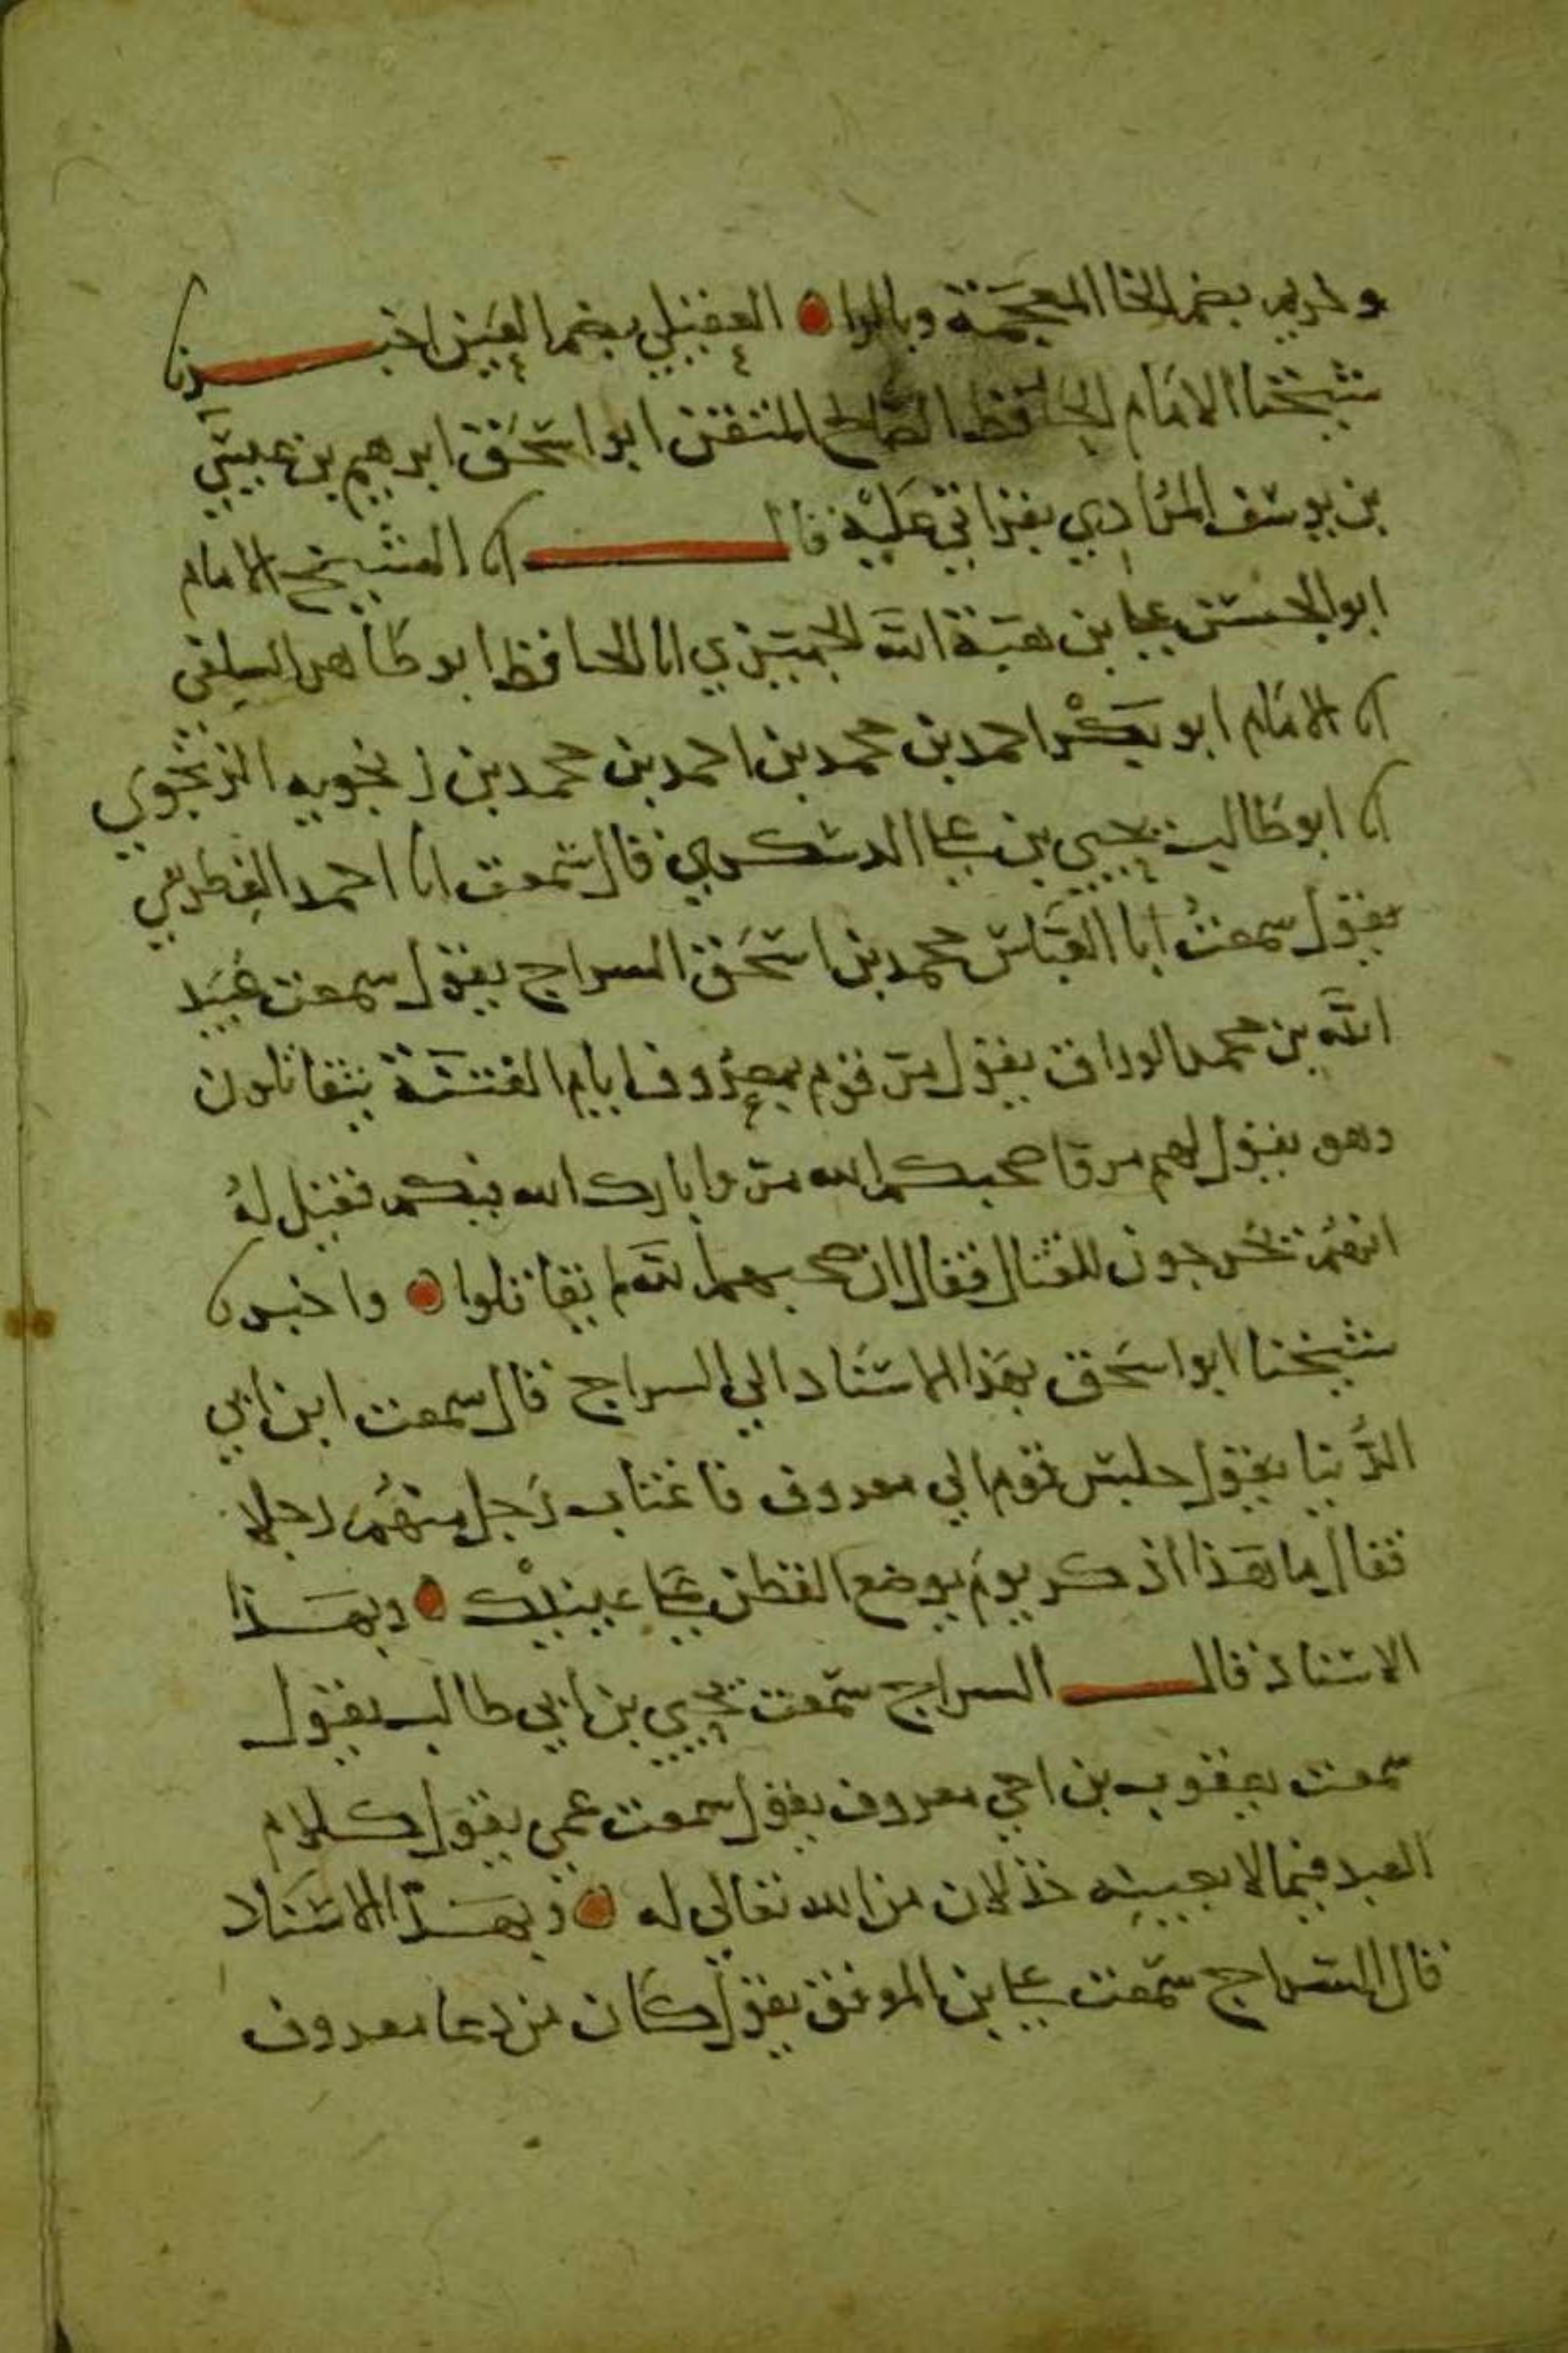 وخريم بضم الخا المعجمة وبالرا العقيلي بضم العين اخبرنا
شيخنا الامام الحافظ الصالح المتقن ابو اسحق ابرهيم بن عيسى
بن يوسف المرادي بقراتي عليه قال انا الشيخ الامام
ابو الحسن علي بن هبة الله الجميزي انا الحافظ ابو طاهر السلفي
انا الامام ابو بكر احمد بن محمد بن احمد بن محمد بن زنجويه الزنجوي
انا ابو طالب يحيى بن علي الدسكري قال سمعت ابا احمد الغطريفي
يقول سمعت ابا العباس محمد بن اسحق السراج يقول سمعت عبيد
الله بن محمد الوراق يقول مر قوم بمعروف ايام الفتنة يتقاتلون
وهو يقول لهم مروا صحبكم الله مروا بارك الله فيكم فقيل له
انهم يخرجون للقتال فقال ان صحبهم الله لم يقاتلوا واخبرنا
شيخنا ابو اسحق بهذا الاسناد الي السراج قال سمعت ابن ابي
الدنيا يقول جلس قوم الي معروف فاغتاب رجل منهم رجلا
فقال يا هذا اذكر يوم يوضع القطن على عينيك وبهذا
الاسناد قال السراج سمعت يحيي بن ابي طالب يقول
سمعت يعقوب بن اخي معروف يقول سمعت عمي يقول كلام
العبد فيما لا يعنيه خذلان من الله تعالى له وبهذا الاسناد
قال السراج سمعت علي بن الموفق يقول كان من دعا معروف